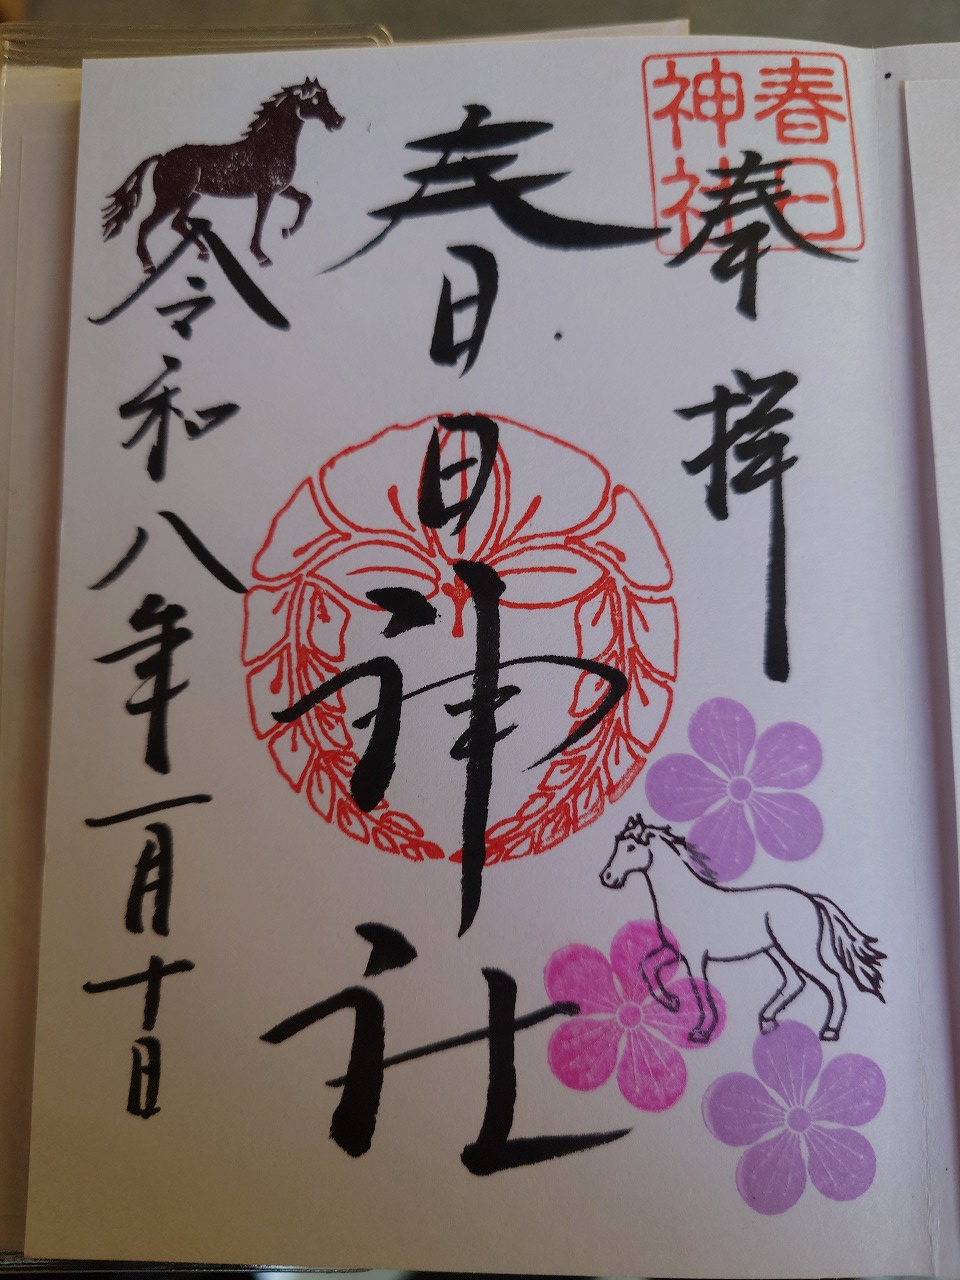 奉拝
春日
神社
春日神社
令和八年一月十日